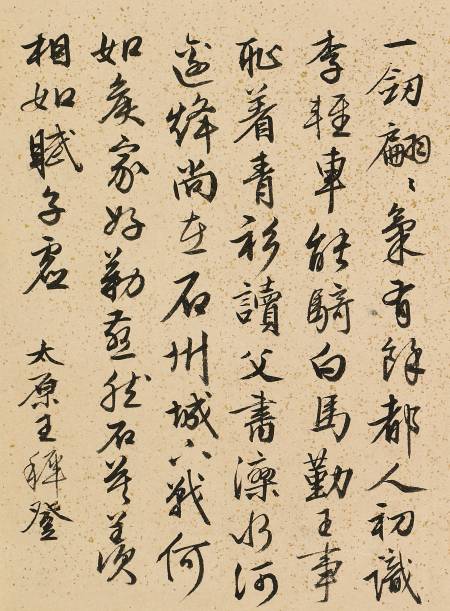 一劒翩〻氣有餘都人初識
李輕車能騎白馬勤王事
恥着青衫讀父書水河
邊烽尚在石州城下戰何
如侯家好勒燕然石莫羨
相如賦子虛 太原王穉登